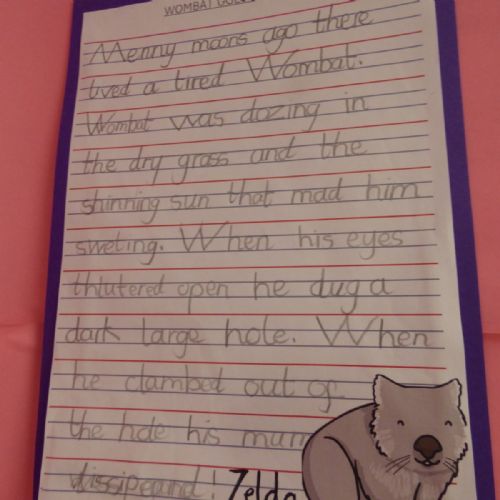 WOMBAT GOES
Menny moons ago there
lived a tired Wombat.
Wombat was dozing in
the dry grass and the
shinning sun that mad him
sweting. When his eyes
thlutered open he dug a
dark large hole. When
he clambed out of
the hole his mum
dissiperind! Zelda